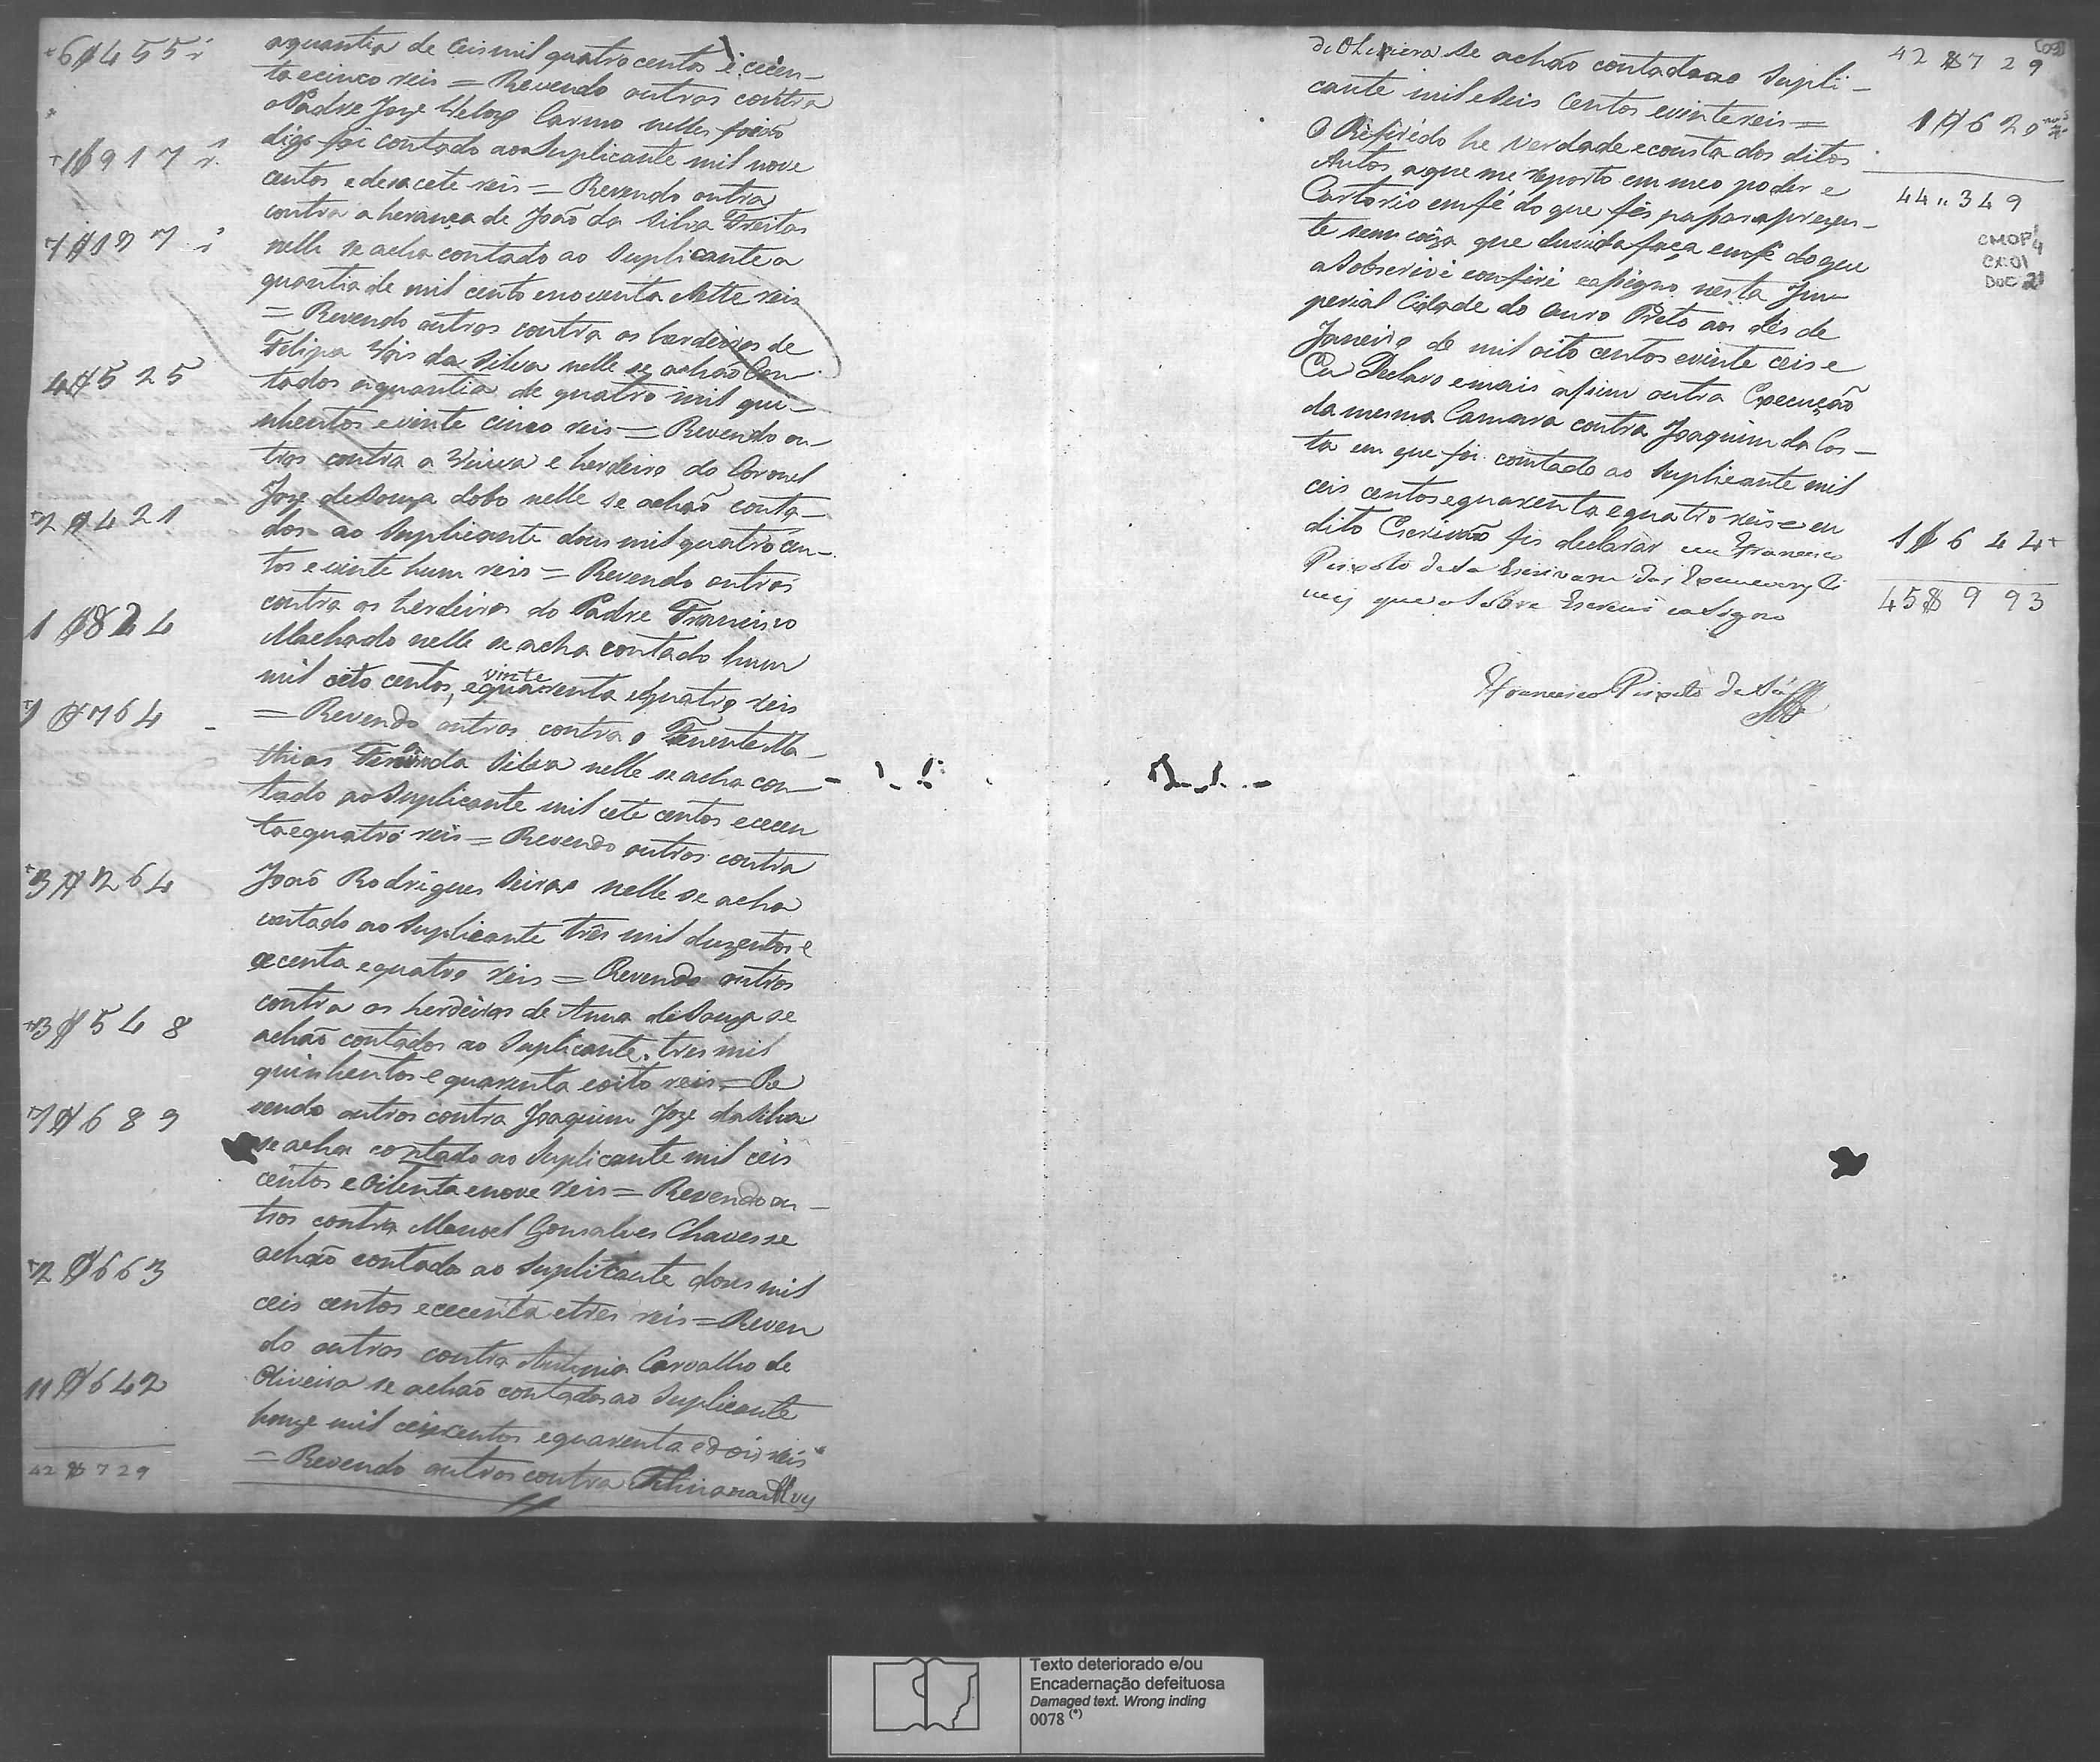 6$455 r
aquantia de Ceis mil quatro centos e cecen-
ta e cinco reis = Revendo outros contra
o Padre Joze Carmo nelles forão
1$917 r
digo foi contado ao Suplicante mil nove
centos e deza cete reis = Revendo outra
contra a herança de João da Silva Freitas
1$197 r
nelle se acha contado ao Suplicante a
quantia de mil cento e noventa e Sette reis
= Revendo outros contra os herdeiros de
Felipa da Silva nelle se achão Con-
4$525
tados a quantia de quatro mil qui-
nhentos e vinte cinco reis = Revendo ou-
tros contra a Viuva e herdeiros do Coronel
Joze de Souza Lobo nelle se achão conta-
2$421
dos ao Suplicante dous mil quatro cen-
tos e vinte hum reis = Revendo outros
contra os herdeiros do Padre Francisco
1$824
Machado nelle se acha contado hum
mil oito centos, e quarenta e quatro reis
vinte
1$764
= Revendo outros contra o Tenente Ma-
thias da Silva nelle se acha con-
tado ao Suplicante mil cete centos e cecen
ta e quatro reis = Revendo outros contra
3$264
João Rodrigues nelle se acha
contado ao Suplicante três mil duzentos e
cecenta e quatro reis = Revendo outros
contra os herdeiros de Anna de Souza se
3$548
achão contados ao Suplicante tres mil
quinhentos e quarenta e oito reis = Re
vendo outros contra Joaquim Joze da Silva
1$689
se acha contado ao Suplicante mil ceis
centos e Oitenta e nove reis = Revendo ou-
tros contra Manoel Gonsalves Chaves se
2$663
achão contados ao Suplicante dous mil
ceis centos e cecenta e tres reis = Reven
do outros contra Antonio Carvalho de
11$642
Oliveira se achão contados ao Suplicante
honze mil ceis centos e quarenta e dois reis
42$729
= Revendo outros contra Alvz
de Oliveira se achão contados ao Supli-
42$729
cante mil e Seis Centos e vinte reis =
1$620
O Referido he verdade e consta dos ditos
Autos a que me reporto em meo poder e
44"349
Cartorio em fé do que fés pasar a prezen-
te sem coiza que duvida faça em fé do que
a Sobscrivi conferi e asigno nesta Im-
perial Cidade do Ouro Preto aos dés de
Janeiro de mil oito centos e vinte ceis e
Eu Declaro e mais asim outra Execução
da mesma Camara contra Joaquim da Cos-
ta em que foi contado ao Suplicante mil
ceis centos e quarenta e quatro reis e eu
1$644
dito Escrivão fis declarar eu Francisco
Peixoto de Sa Escrivam das Execuçoens Ci
45$993
veis que o Sobre Escrevi e asigno
Francisco Peixoto de Sá
CMOP
CX:01
DOC 21
Texto deteriorado e/ou
Encadernação defeituosa
Damaged text. Wrong inding
0078 (*)